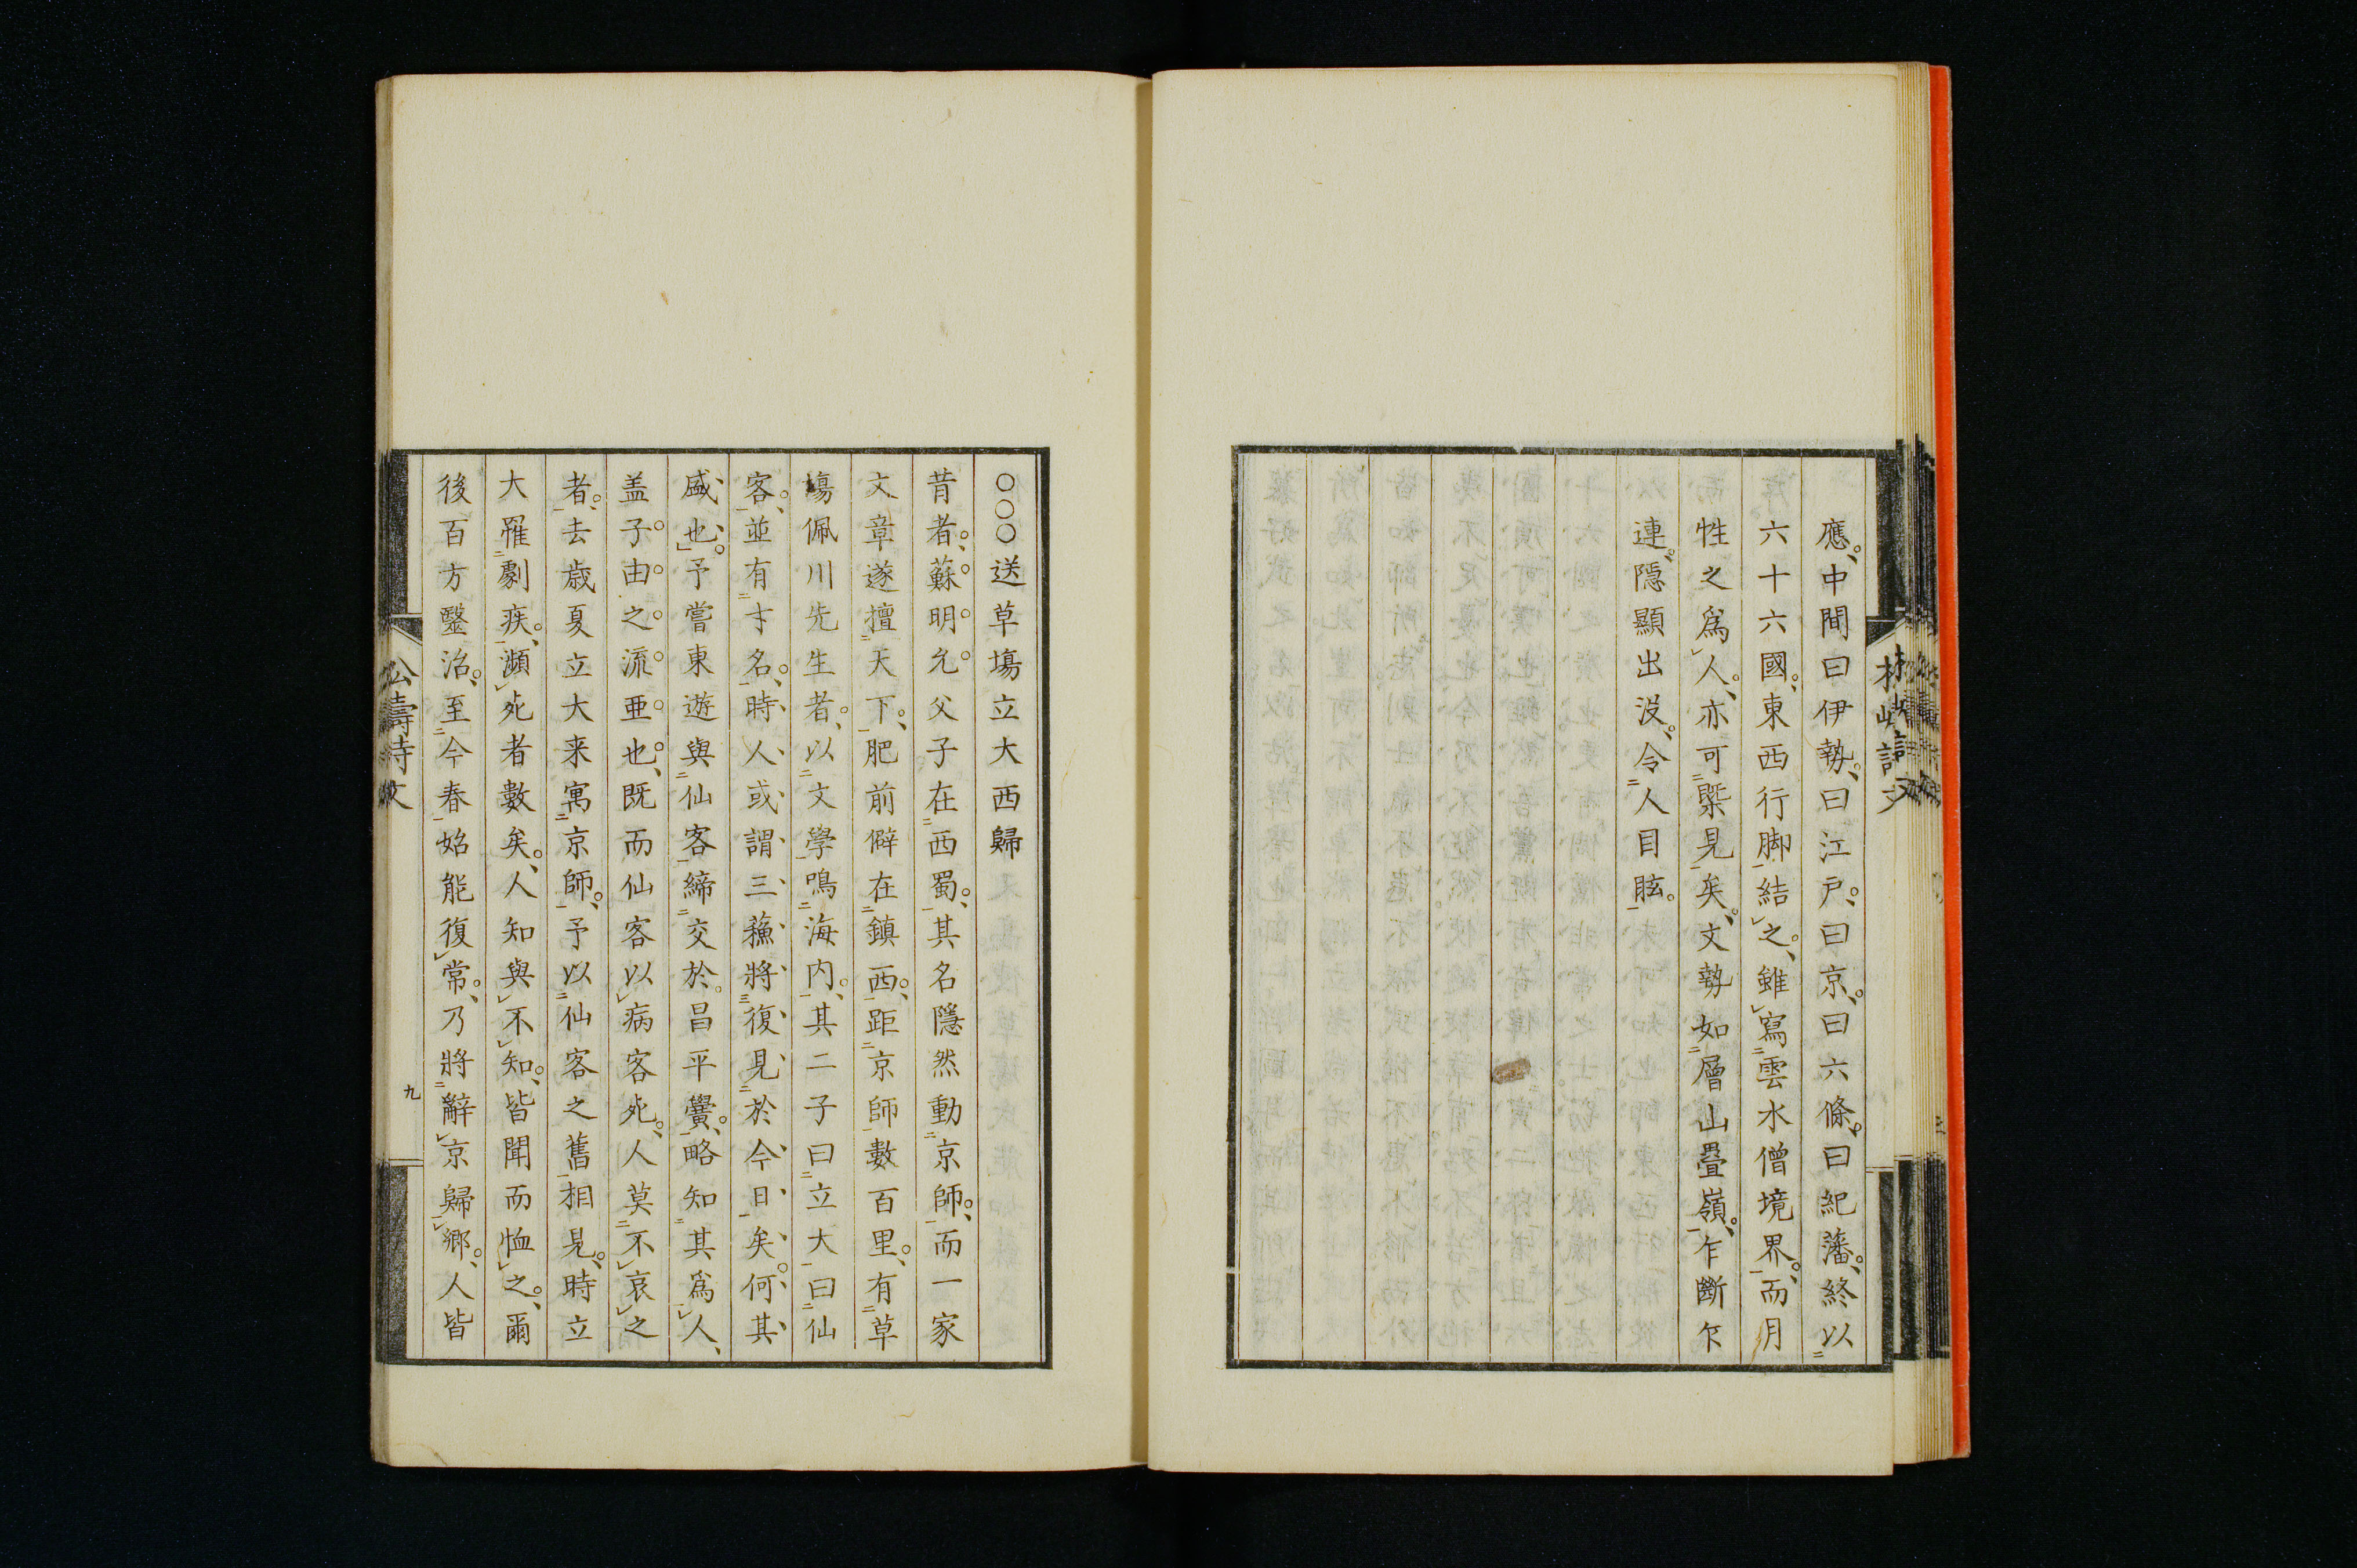 應中間曰伊勢曰江戸曰京曰六條曰紀藩終以
六十六國東西行脚結之雖寫雲水僧境界而月
性之爲人亦可槩見矣文勢如層山疊嶺乍斷乍
連隱顯出没令人目眩
○○○送草塲立大西歸
昔者蘇明允父子在西蜀其名隱然動京師而一家
文章遂擅天下肥前僻在鎮西距京師數百里有草
塲佩川先生者以文學鳴海内其二子曰立大曰仙
客並有才名時人或謂三蘓將復見於今日矣何其
盛也予嘗東遊與仙客締交於昌平黌略知其爲人
盖子由之流亜也既而仙客以病客死人莫不哀之
者去歳夏立大来寓京師予以仙客之舊相見時立
大罹劇疾瀕死者數矣人知與不知皆聞而恤之爾
後百方毉治至今春始能復常乃將辭京歸郷人皆
公壽詩文
九